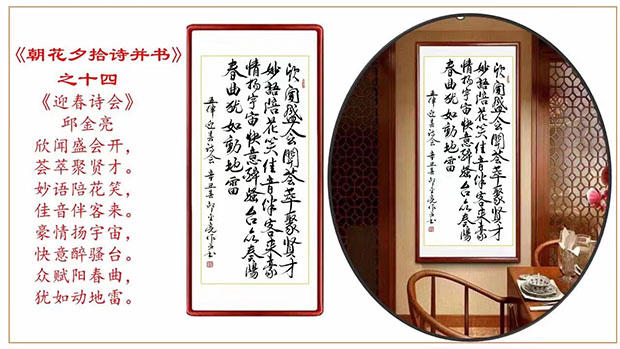 《朝花夕拾诗并书》
之十四
《迎春诗会》
邱金亮
欣闻盛会开，
荟萃聚贤才。
妙语陪花笑，
佳音伴客来。
豪情扬宇宙，
快意醉骚台。
众赋阳春曲，
犹如动地雷。
欣闻盛会開荟萃聚贤才
妙語陪花笑佳音伴客来豪
情扬宇宙快意醉骚台众奏陽
春曲犹如動地雷
五律 迎春诗会 辛丑春 邱金亮作并书
欣闻盛会開荟萃聚贤才
妙語陪花笑佳音伴客来豪
情扬宇宙快意醉骚台众奏陽
春曲犹如動地雷
五律 迎春诗会 辛丑春 邱金亮作并书